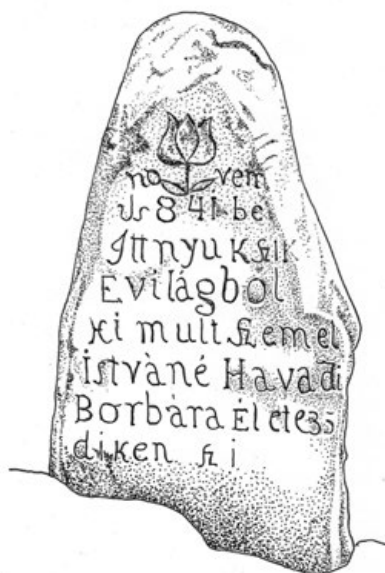 no vem
841 be
Ittnyu Kszik
E világbol
Ki mult szemel
istvàné Havadi
Borbàra Élete35
diken sz i